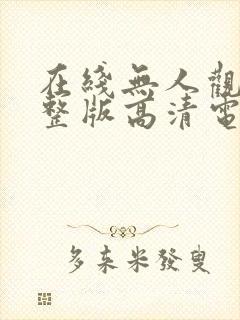 在綫無人觀
整版高清電
多来米發叟